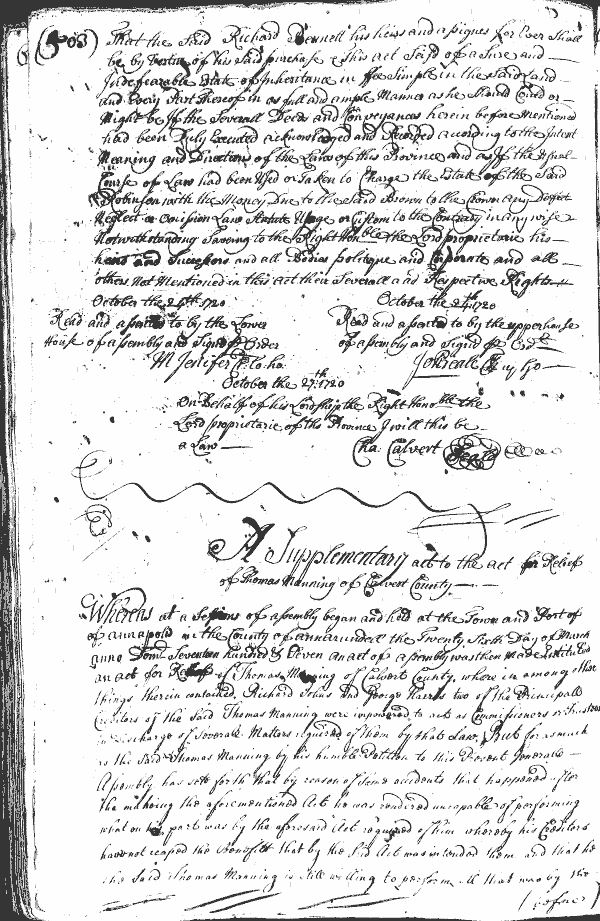 (503)
That the Said Richard Bennett his heirs and assignes for Ever Shall
be by Vertue of his Said purchase & this act Seised of a Sure and
Indefeazable Estate of Inheritance in ffee Simple in the Said Land
and Every Part Thereof in as full and ample Manner as he Should Could or
Might be If the Severall Deeds and Conveyances herein before Mentioned
had been Duly Executed acknowledged and Recorded according to the Intent
Meaning and Directions of the Laws of this Province and as If the Usual
Course of Law had been Used or Taken to Charge the Estate of the Said
Robinson with the Money Due to the Said Brown to the Contrary Defect
Neglect or Omission Law Statute Usage or Custom to the Contrary in any wise
Notwithstanding Saveing to the Right Honble the Lord proprietarie his
heirs and Successors and all Bodies politique and Corporate and all
others Not Mentioned in this Act their Severall and Respective Rights
October the 25th 1720
October the 24th 1720
Read and assented to by the Lower
Read and assented to by the upper house
House of assembly and Signd Order
of assembly and Signd Ordr
M Jenifer Cl lo. ho.
Jo Beale Cl up Ho
October the 27th: 1720
On Behalf of his Lordship the Right Honoble the
Lord proprietarie of this Province I will this be
a Law
Cha: Calvert Seale
A Supplementary act to the act for Relief
of Thomas Manning of Calvert County.
Whereas at a Session of assembly began and held at the Town and Port of
of annapolis in the County of annarundell the Twenty Sixth Day of March
anno Dom. Seventeen hundred & Eleven an act of assembly was then made Intituled
an act for Relief of Thomas Manning of Calvert County. wherein among other
things therein contained, Richard Johns and George Harris two of the Principall
Creditors of the Said Thomas Manning were impowered to act as Commissioners or Trustees
in Discharge of Severall Matters required of them by that Law, But for as much
as the Said Thomas Manning by his humble Petition to this Present Generall
Assembly has sett forth that by reason of Some accidents that happened after
the making the aforementioned Act he was rendered uncapable of performing
what on his part was by the aforesaid Act required of him whereby his Creditors
have not reaped the Benefitt that by the Said Act was intended them and that he
the Said Thomas Manning is still willing to perform all that was by the
(before)